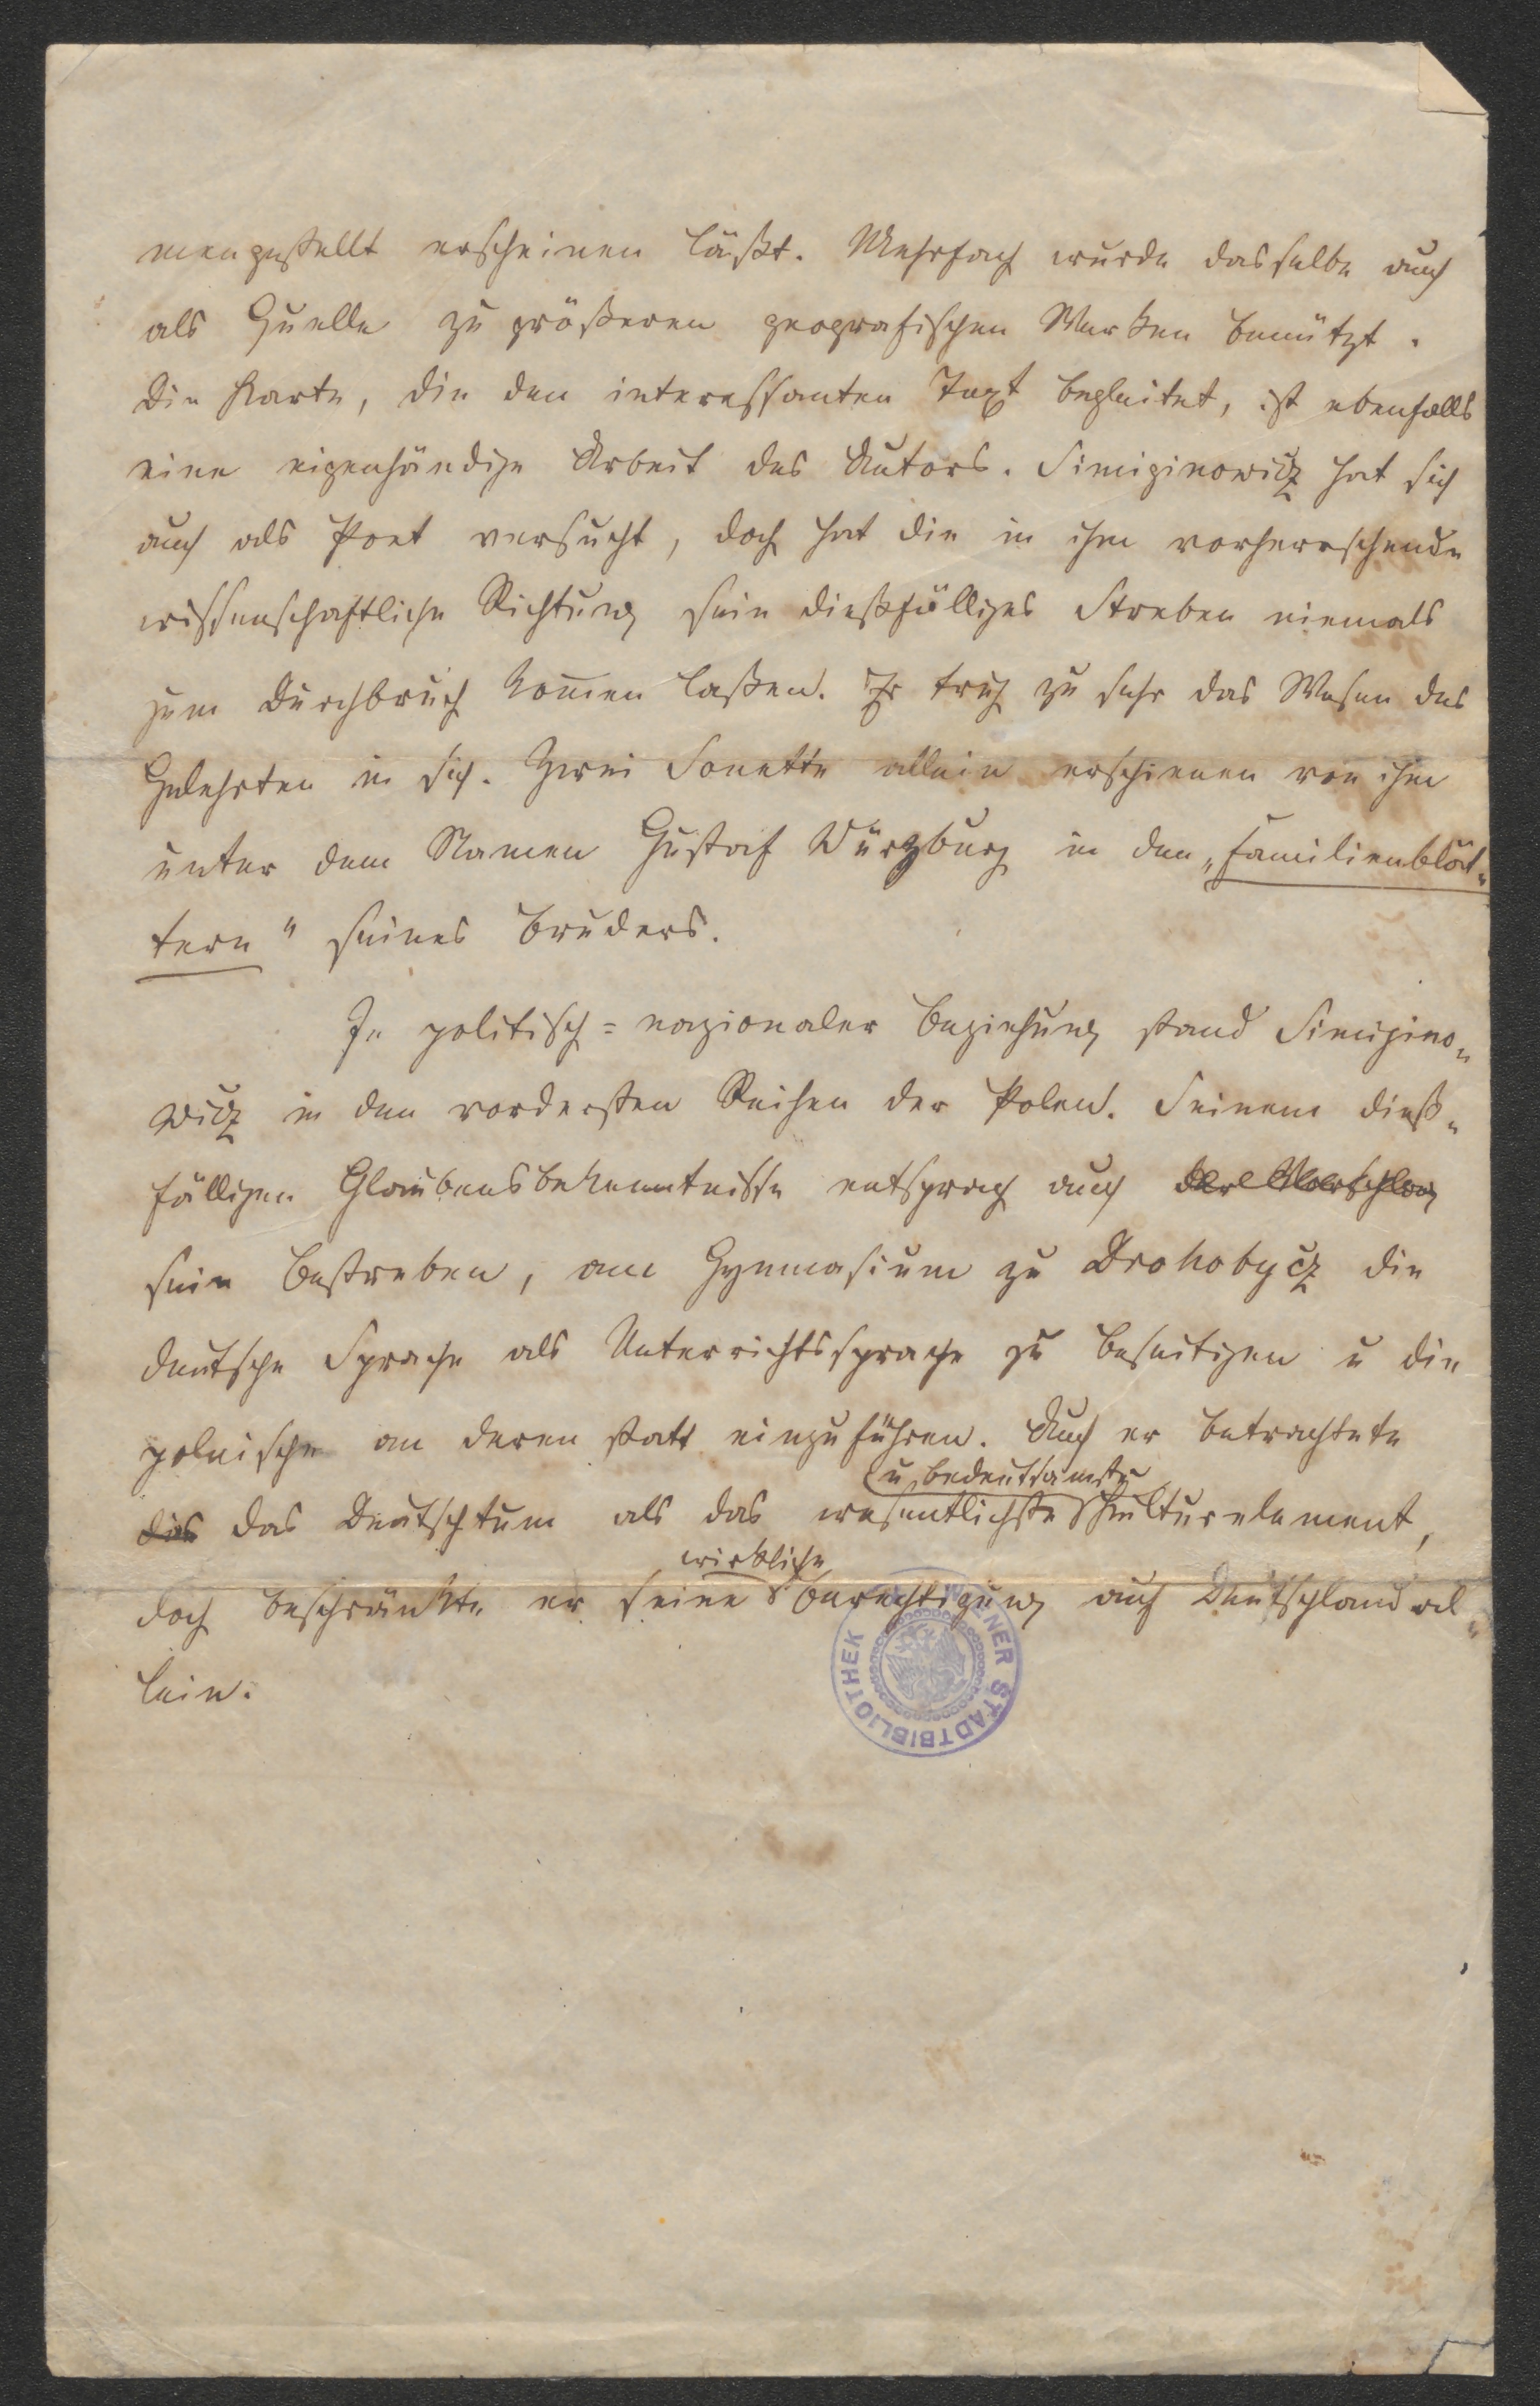 mengestellt erscheinen läßt. Mehrfach wurde dasselbe auch
als Quelle zu größeren geografischen Werken benützt.
Die Karte, die den interessanten Text begleitet, ist ebenfalls
eine eigenhändige Arbeit des Autors. Simiginowicz hat sich
auch als Poet versucht, doch hat die in ihm vorherrschende
wissenschaftliche Richtung sein dießfälliges Streben niemals
zum Durchbruch kom̄en laßen. Er trug zu sehr das Wesen des
Gelehrten in sich. Zwei Sonette allein erschienen von ihm
unter dem Namen Gustaf Würzburg in den „Familienblät-
tern" seines Bruders.
In politisch-nazionaler Beziehung stand Simigino-
wicz in den vordersten Reihen der Polen. Seinem dieß-
fälligen Glaubensbekenntnisse entsprach auch der Vorschlag
sein Bestreben, am Gymnasium zu Drohobycz die
deutsche Sprache als Unterrichtssprache zu beseitigen u die
polnische an deren statt einzuführen. Auch er betrachtete
u bedeutsamste
das Deutschtum als das wesentlichste Kulturelement,
wirkliche
doch beschränkte er seine Berechtigung auf Deutschland al-
lein.
WIENER STADTBIBLIOTHEK